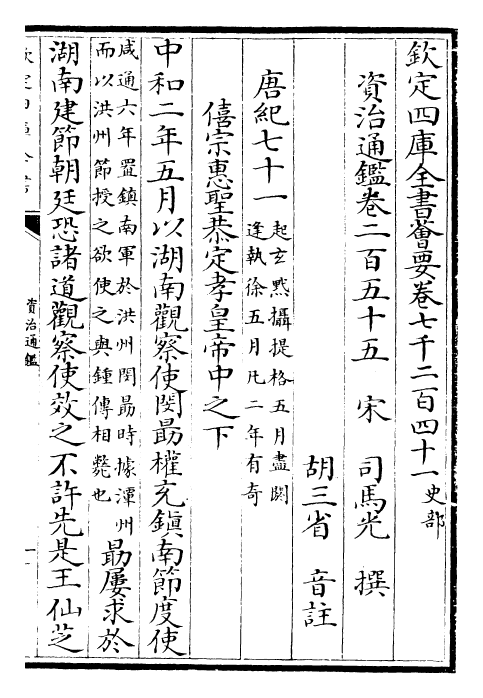 欽定四庫全書薈要卷七千二百四十一史部
資治通鑑卷二百五十五 宋 司馬光 撰
胡三省 音註
唐紀七十一起玄黓攝提格五月盡閼
逢執徐五月凡二年有奇
僖宗惠聖恭定孝皇帝中之下
中和二年五月以湖南觀察使閔勗權充鎮南節度使
咸通六年置鎮南軍於洪州閔勗時據潭州
而以洪州節授之欲使之與鍾傳相斃也勗屢求於
湖南建節朝廷恐諸道觀察使效之不許先是王仙芝
資治通鑑
一